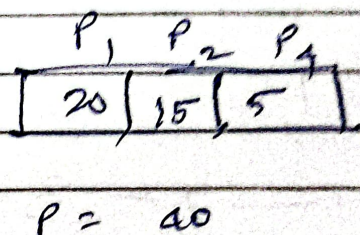 P1 P2 P4
20 15 5
P = 40